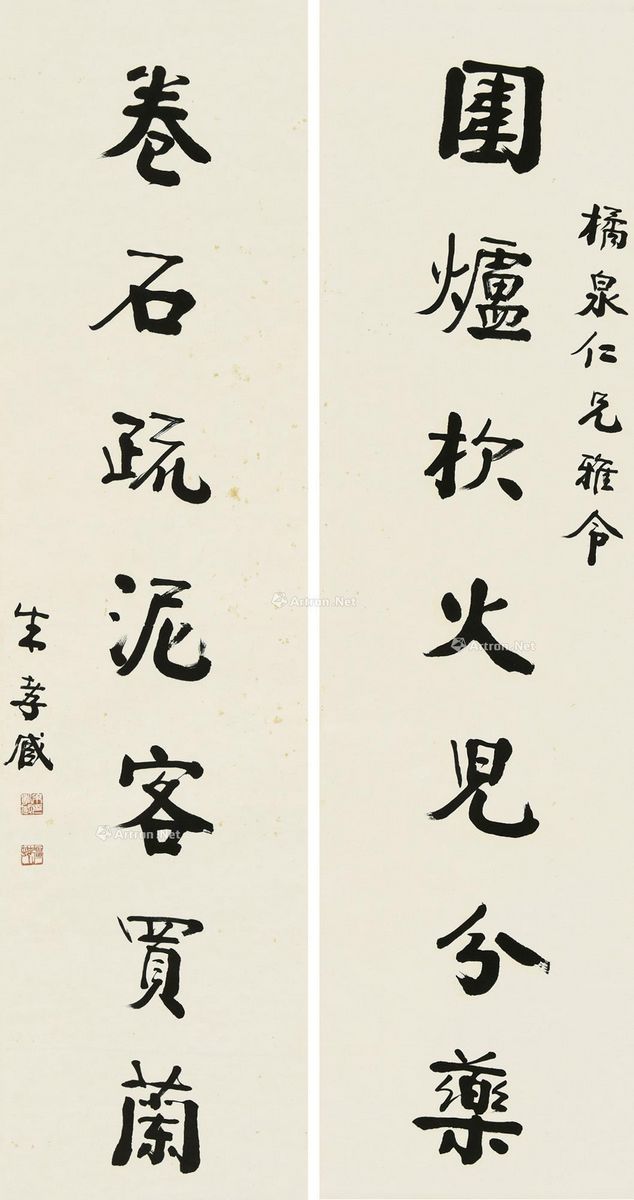 橘泉仁兄雅令
圍爐火兒分藥
卷石疏泥客買蘭
朱孝臧
Artron.Net
Artron.Net
Artron.Net